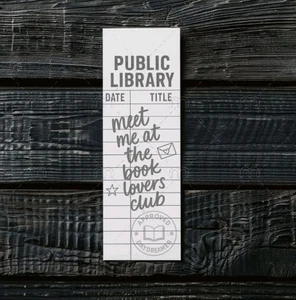 PUBLIC
LIBRARY
DATE TITLE
meet
me at
the
book
lovers
club
APPROVED
DAYDREAMER